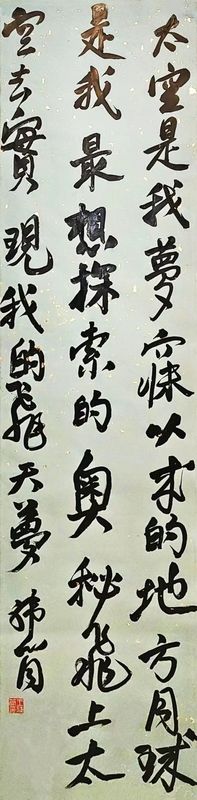 太空是我夢寐以求的地方月球
是我最想探索的奧秘飛上太
空去實現我的飛天夢